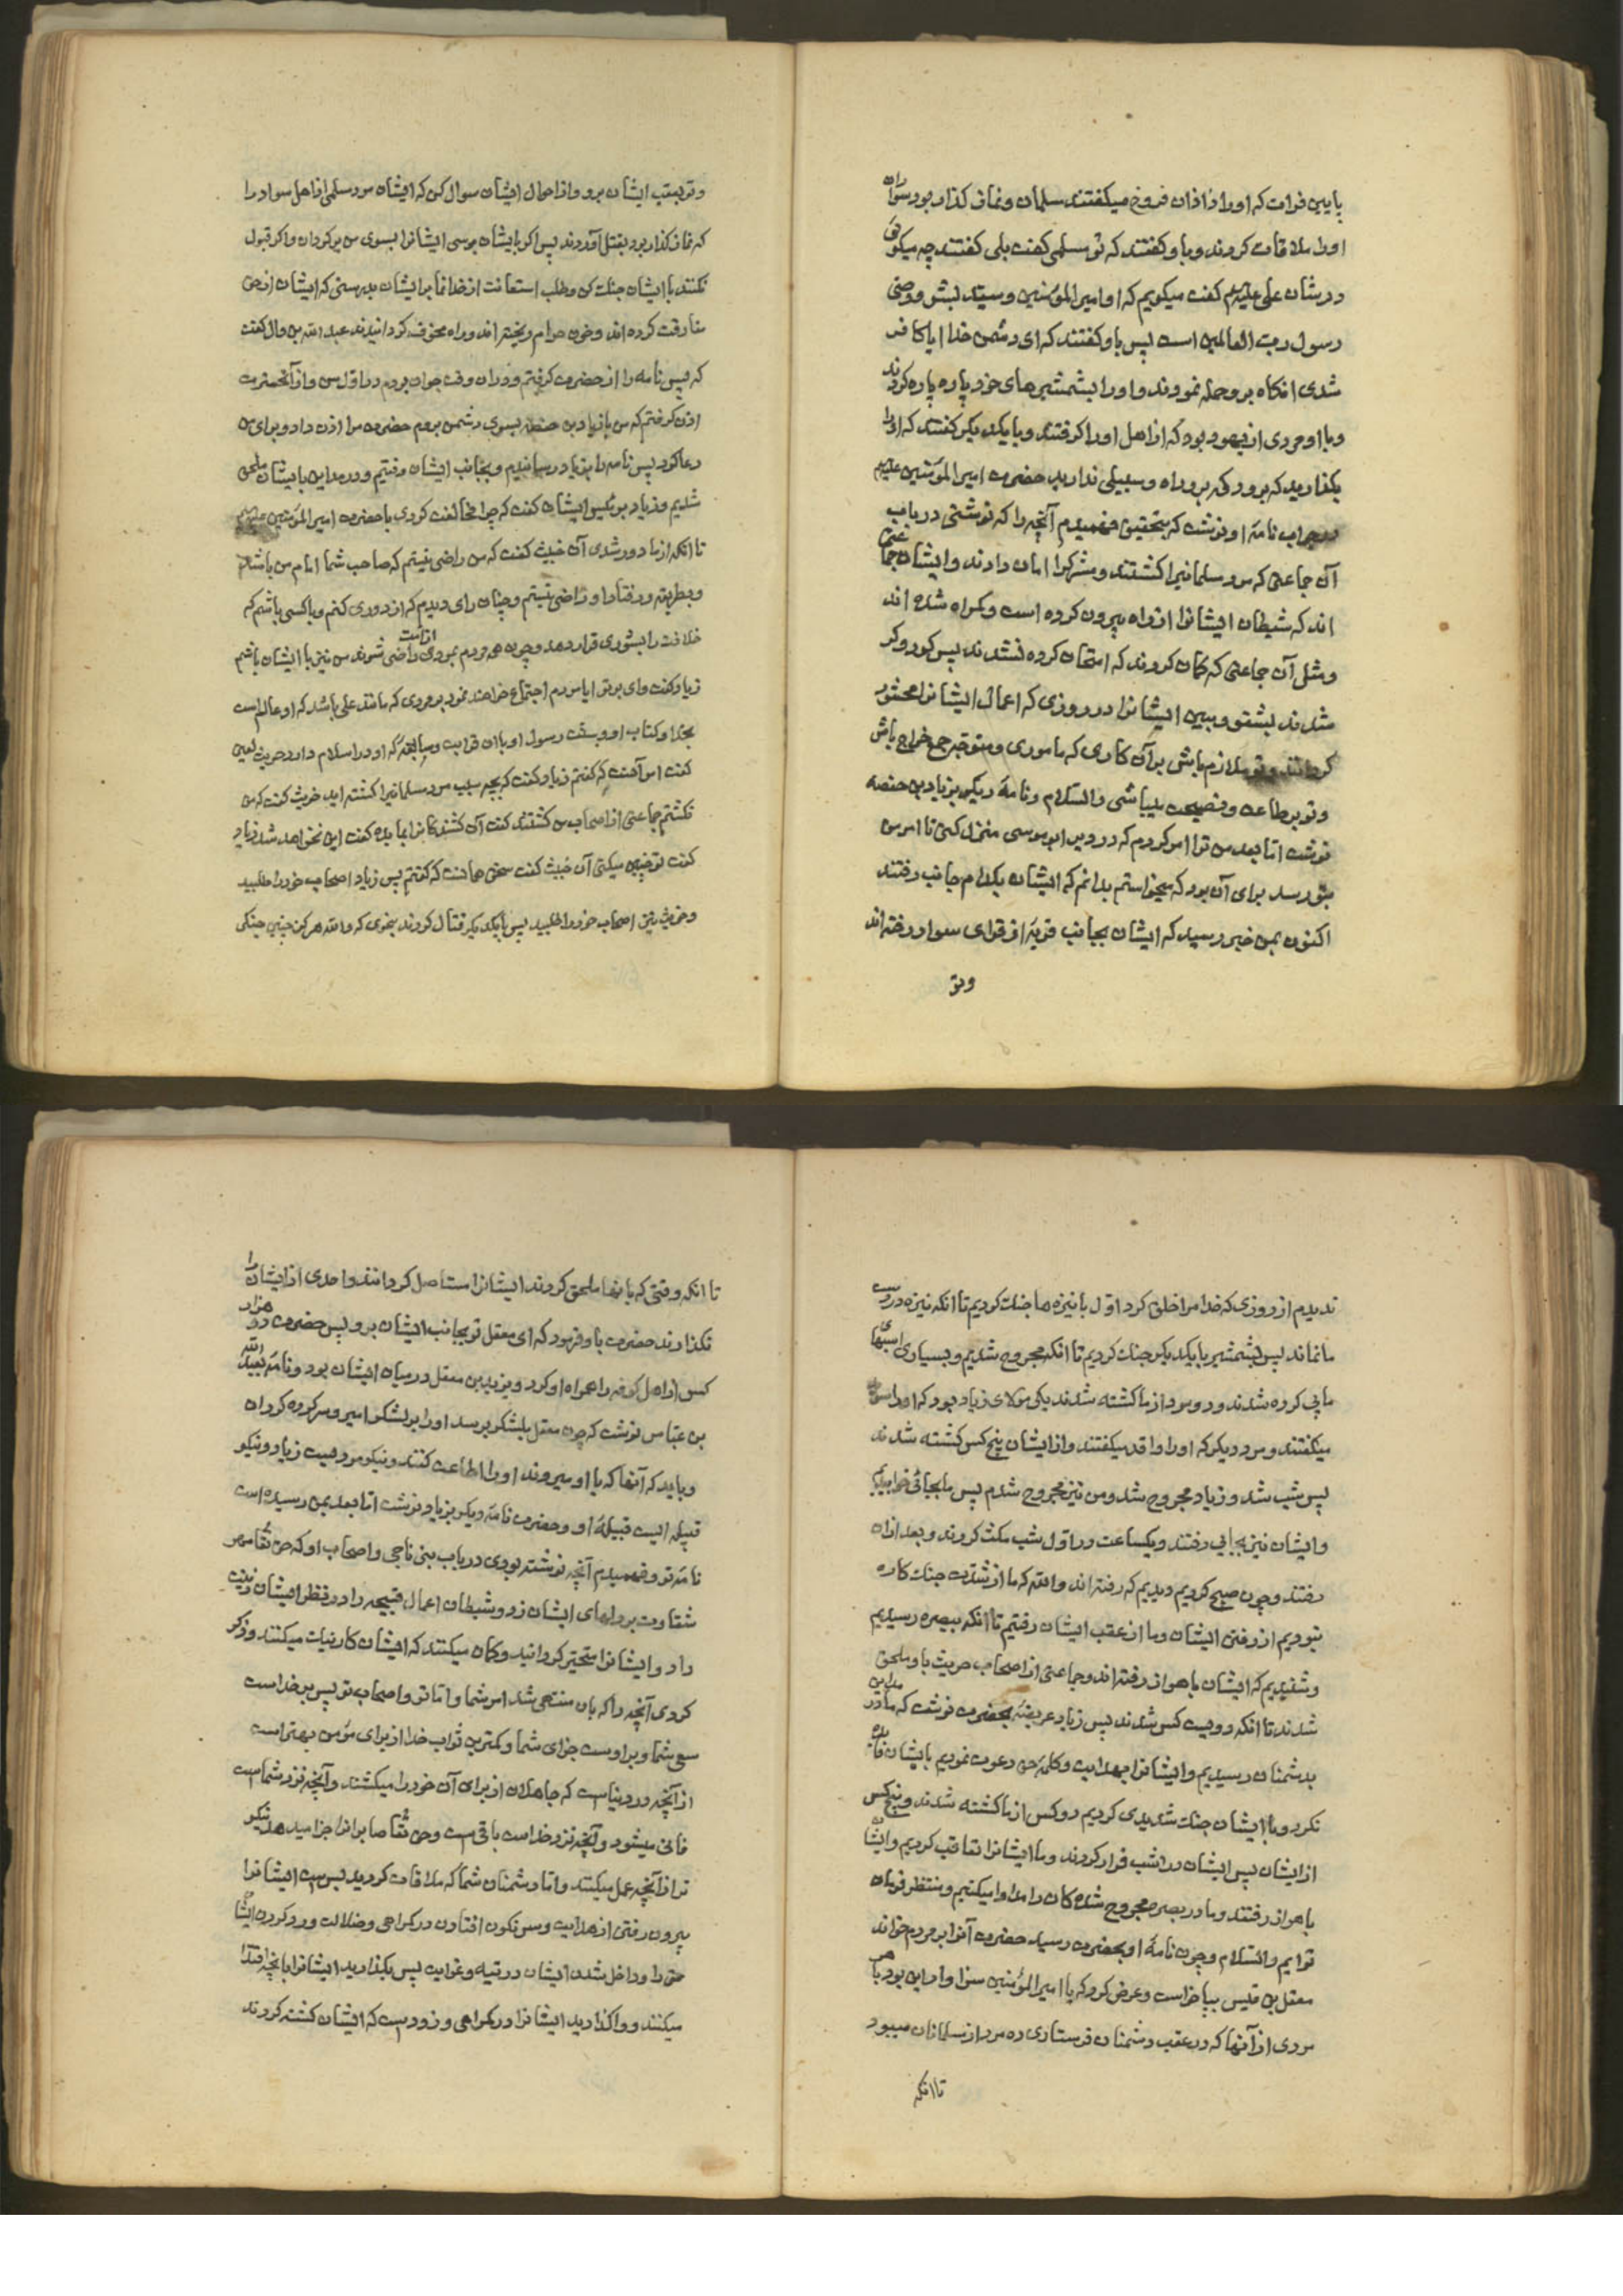 پایین فرات که او را زاذان فروخ میکفتند سلمان ونماز کذار بود سواران
اورا ملاقات کردند وباو کفتند که تو مسلمی کفت بلی کفتند چه میکوئی
درشان علی علیهم کفت میکویم که او امیر المؤمنین وسید بشر ووصی
رسول رب العالمین است پس باو کفتند که ای دشمن خدا ایا کافر
شدی انکاه برو حمله نمودند واورا بشمشیرهای خود پاره پاره کردند
وبا او مردی از یهود بود که از اهل اورا کرفتند وبا یکدیکر کفتند که اورا
بکذارید که برود که برو راه وسبیلی ندارید حضرت امیر المؤمنین علیهم
درجواب نامهٔ او نوشت که بتحقیق فهمیدم آنچه را که نوشتی درباب
آن جماعتی که مرد مسلمانیرا کشتند ومشرکرا امان دادند وایشان جماعتی
اند که شیطان ایشانرا از راه بیرون کرده است وکمراه شده اند
ومثل آن جماعتی که کمان کردند که امتحان کرده نشدند پس کور وکر
شدند بشنو وببین ایشانرا در روزی که اعمال ایشانرا محشور
کردانند وتو ملازم باش برآن کاری که ماموری ومتوجه جمع خراج باش
وتو برطاعت ونصیحت میباشی والسلام ونامهٔ دیکر بزیاد بن حفصه
نوشت اما بعد من ترا امر کردم که دردیر ابوموسی منزل کنی تا امر من
بتو رسد برای آن بود که میخواستم بدانم که ایشان بکدام جانب رفتند
اکنون بمن خبر رسید که ایشان بجانب قریهٔ از قرای سواد رفته اند
وتو
وتو بعقب ایشان برو واز احوال ایشان سوال کن که ایشان مرد مسلمی از اهل سواد را
که نماز کذار بود بقتل آوردند پس اکر بایشان برسی ایشانرا بسوی من برکردان واکر قبول
نکنند با ایشان جنك کن وطلب استعانت از خدا نما بر ایشان بدرستی که ایشان از حق
مفارقت کرده اند وخون حرام ریخته اند وراه مخوف کردانیدند عبد الله بن وال کفت
که پس نامه را از حضرت کرفتم ودران وقت جوان بودم در اول سن واز آنحضرت
اذن کرفتم که من با زیاد بن حفصه بسوی دشمن بروم حضرت مرا اذن داد وبرای من
دعا کرد پس نامه را بزیاد رسانیدم وبجانب ایشان رفتیم ودرمداین بایشان ملحق
شدیم وزیاد برئیس ایشان کفت که چرا مخالفت کردی با حضرت امیر المؤمنین علیهم
تا انکه از ما دور شدی آن خبیث کفت که من راضی نیستم که صاحب شما امام من باشد
وبطریقه ورفتار او راضی نیستم وچنان رای دیدم که از دوری کنم وبا کسی باشم که
خلافت را بشوری قرار دهد وچون همه مردم بمردی از امت راضی شوند من نیز با ایشان باشم
زیاد کفت وای برتو ایا مردم اجتماع خواهند نمود بر مردی که مانند علی باشد که او عالم است
بخدا وکتاب او وسنت رسول او با ان قرابت وسابقهٔ که او در اسلام دارد خریث لعین
کفت امر آنست که کفتم زیاد کفت که بچه سبب مرد مسلمانیرا کشته اید خریث کفت که من
نکشتم جماعتی از اصحاب من کشتند کفت آن کشندکانرا بما بده کفت این نخواهد شد زیاد
کفت تو چنین میکنی آن خبیث کفت سخن همانست که کفتم پس زیاد اصحاب خود را طلبید
وخریث نیز اصحاب خود را طلبید پس با یکدیکر قتال کردند بنحوی که والله هرکز چنین جنکی
ندیدم از روزی که خدا مرا خلق کرد اول با نیزه ها جنك کردیم تا انکه نیزه دردست
ما نماند پس بشمشیر با یکدیکر جنك کردیم تا انکه مجروح شدیم وبسیاری اسبهای
ما پی کرده شدند ودو مرد از ما کشته شدند یکی مولای زیاد بود که اورا سوید
میکفتند ومرد دیکر که اورا واقد میکفتند واز ایشان پنج کس کشته شدند
پس شب شد وزیاد مجروح شد ومن نیز مجروح شدم پس ما بجائی خوابیدیم
وایشان نیز بجائی رفتند ویکساعت در اول شب مکث کردند وبعد ازان
رفتند وچون صبح کردیم دیدیم که رفته اند والله که ما از شدت جنك کاره
نبودیم از رفتن ایشان وما از عقب ایشان رفتیم تا انکه ببصره رسیدیم
وشنیدیم که ایشان باهواز رفته اند وجماعتی از اصحاب خریث باو ملحق
شدند تا انکه دویست کس شدند پس زیاد عریضهٔ بحضرت نوشت که ما در مداین
بدشمنان رسیدیم وایشانرا بهدایت وکلمهٔ حق دعوت نمودیم بایشان فایده
نکرد وبا ایشان جنك شدیدی کردیم دو کس از ما کشته شدند وپنج کس
از ایشان پس ایشان در شب فرار کردند وما ایشانرا تعاقب کردیم وایشان
باهواز رفتند وما در بصره مجروح شده کان را مداوا میکنیم ومنتظر فرمان
توایم والسلام وچون نامهٔ او بحضرت رسید حضرت آنرا بر مردم خواند
معقل بن قیس بپا خواست وعرض کرد که یا امیر المؤمنین سزاوار این بود با هر
مردی از آنها که در عقب دشمنان فرستادی ده مرد از مسلمانان میبود
تا انکه
تا انکه وقتی که بانها ملحق کردند ایشانرا مستاصل کردانند واحدی از ایشان را
نکذارند حضرت باو فرمود که ای معقل تو بجانب ایشان برو پس حضرت دو هزار
کس از اهل کوفه را همراه او کرد ویزید بن معقل درمیان ایشان بود ونامه بعبد الله
بن عباس نوشت که چون معقل بلشکر برسد اورا بر لشکر امیر وسرکرده کردان
وباید که آنها که با او میروند اورا اطاعت کنند ونیکو مردیست زیاد ونیکو
قبیله ایست قبیلهٔ او وحضرت نامهٔ دیکر بزیاد نوشت اما بعد بمن رسیده است
نامهٔ تو وفهمیدم آنچه نوشته بودی درباب بنی ناجی واصحاب او که حق تعالی مهر
شقاوت بردلهای ایشان زد وشیطان اعمال قبیحه را درنظر ایشان زینت
داد وایشانرا متحیر کردانید وکمان میکنند که ایشان کار نیك میکنند وذکر
کردی آنچه را که بان منتهی شد امر شما واما تو واصحاب تو پس بر خداست
سعی شما وبراوست جزای شما وکمترین ثواب خدا از برای مؤمن بهتر است
از آنچه دردنیاست که جاهلان از برای آن خود را میکشند وآنچه نزد شماست
فانی میشود وآنچه نزد خداست باقی است وحق تعالی صابرانرا جزا میدهد نیکو
تر از آنچه عمل میکنند واما دشمنان شما که ملاقات کردید پس بس است ایشانرا
بیرون رفتن از هدایت وسرنکون افتادن درکمراهی وضلالت ورد کردن ایشان
حق را وداخل شدن ایشان درتیه وغوایت پس بکذارید ایشانرا بانچه افترا
میکنند وواکذارید ایشانرا درکمراهی وزود است که ایشان کشته کردند